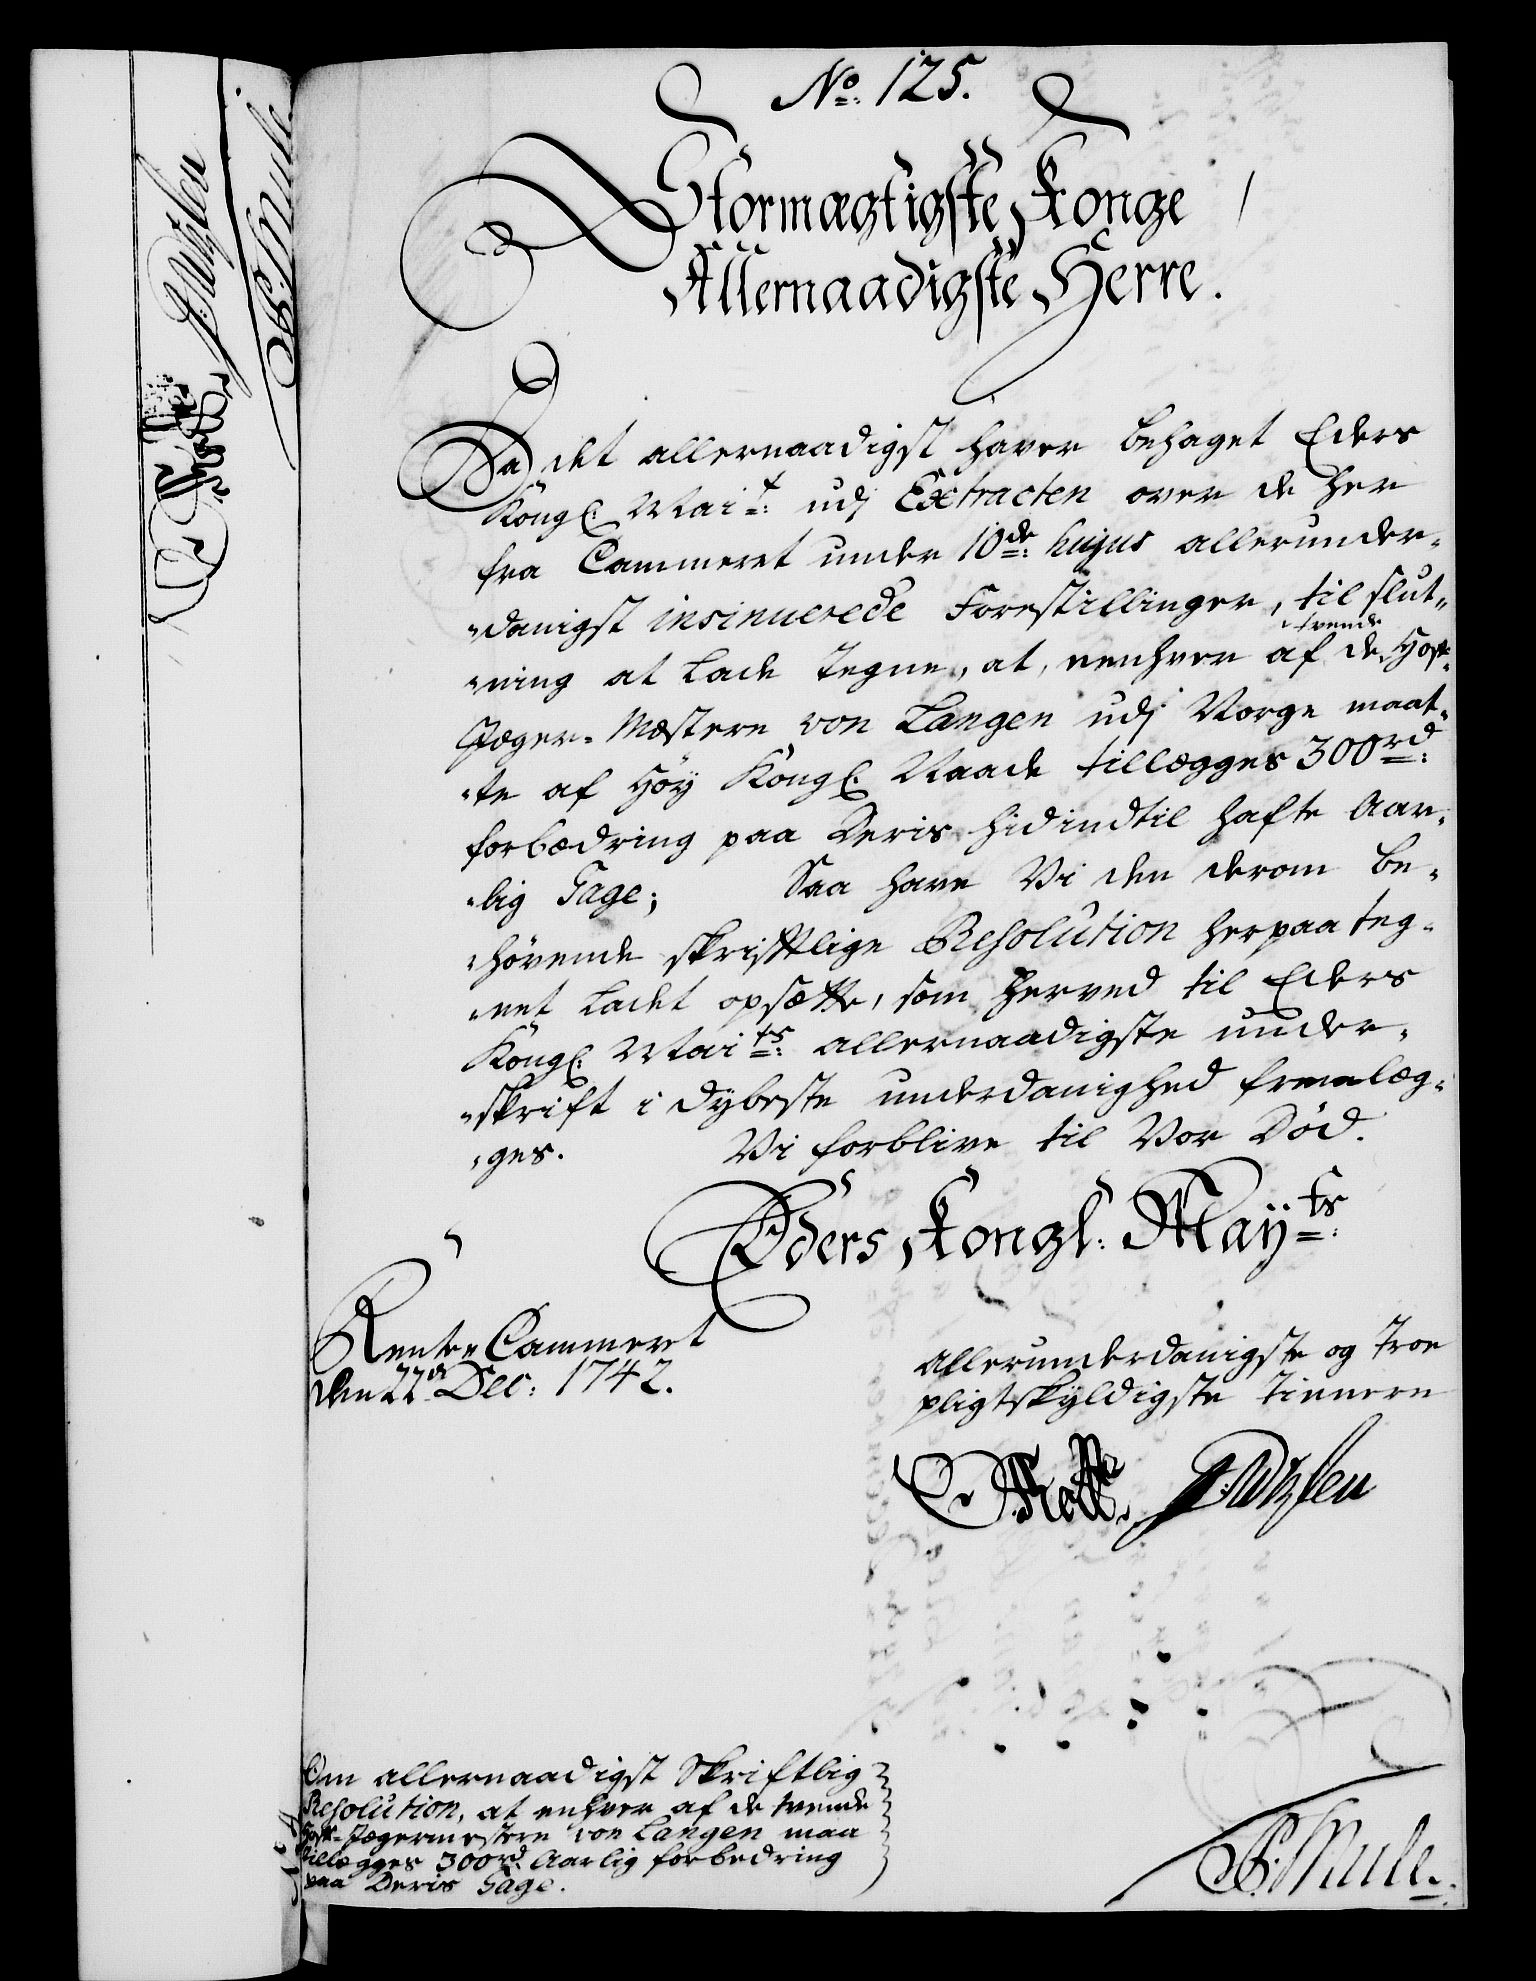 No: 125.
Stormægtigste Konge
Allernaadigste Herre.
Da det allernaadigst haver behaget Eders
Kongl: Mait: udj Extracten over de her
fra Cammeret under 10de: hujus allerunder-
danigst insinuerede Forestillinger, til slut-
tvende
ning at lade Tegne, at, eenhver af de Hoff-
Jæger-Mestere von Langen udj Norge maat-
te af Høy Kongl: Naade tillægges 300rd:
forbedring paa Deris hidindtil hafte Aar-
lig Gage; Saa have Vi den derom be-
hövende skriftlige Resolution herpaa teg-
net ladet opsætte, som herved til Eders
Kongl: Maits: allernaadigste under-
skrift i dybeste underdanighed fremlæg-
ges. Vi forblive til Vor Död.
Eders Kongl: Mayts:
Rente Cammeret
den 22de Dec: 1742.
Allerunderdanigste og Troe
pligtskyldigste Tienere
Om allernaadigst Skriftlig
Resolution, at enhver af de tvende
Hoff-Jægermestere von Langen maa
tillægges 300rd: Aarlig forbedring
paa Deris Gage.
Mule